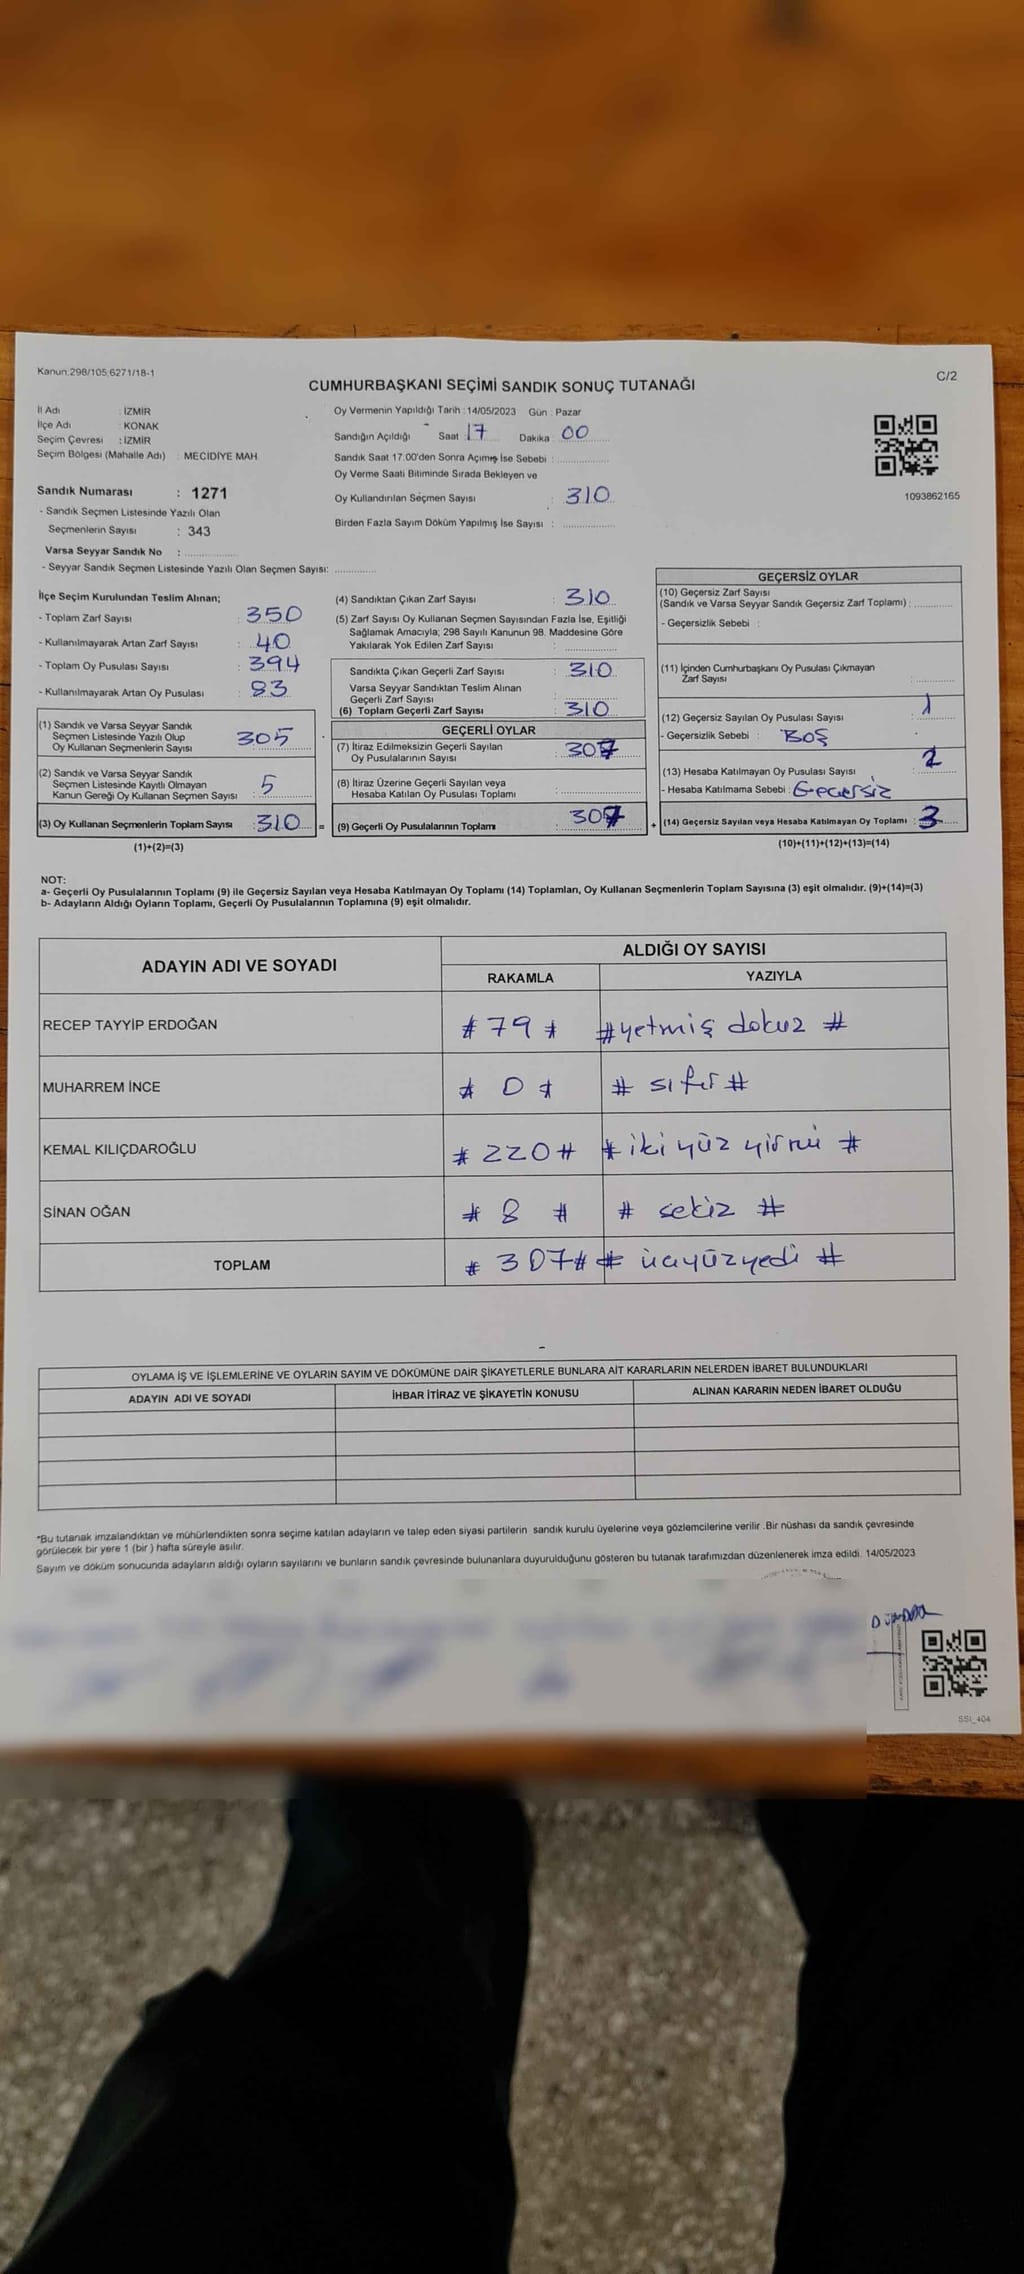 Kanun:298/105,6271/18-1
C/2
CUMHURBAŞKANI SEÇİMİ SANDIK SONUÇ TUTANAĞI
İl Adı : İZMİR
İlçe Adı : KONAK
Seçim Çevresi : İZMİR
Seçim Bölgesi (Mahalle Adı) : MECİDİYE MAH
Sandık Numarası : 1271
- Sandık Seçmen Listesinde Yazılı Olan
Seçmenlerin Sayısı : 343
Varsa Seyyar Sandık No : ..............
- Seyyar Sandık Seçmen Listesinde Yazılı Olan Seçmen Sayısı: ............
Oy Vermenin Yapıldığı Tarih : 14/05/2023 Gün : Pazar
Sandığın Açıldığı Saat : 17 Dakika : 00
Sandık Saat 17:00'den Sonra Açımış İse Sebebi : ..............
Oy Verme Saati Bitiminde Sırada Bekleyen ve
Oy Kullandırılan Seçmen Sayısı : 310
Birden Fazla Sayım Döküm Yapılmış İse Sayısı : ..............
1093862165
İlçe Seçim Kurulundan Teslim Alınan;
- Toplam Zarf Sayısı : 350
- Kullanılmayarak Artan Zarf Sayısı : 40
- Toplam Oy Pusulası Sayısı : 394
- Kullanılmayarak Artan Oy Pusulası : 83
(1) Sandık ve Varsa Seyyar Sandık
Seçmen Listesinde Yazılı Olup
Oy Kullanan Seçmenlerin Sayısı 305
(2) Sandık ve Varsa Seyyar Sandık
Seçmen Listesinde Kayıtlı Olmayan
Kanun Gereği Oy Kullanan Seçmen Sayısı : 5
(3) Oy Kullanan Seçmenlerin Toplam Sayısı : 310 =
(1)+(2)=(3)
(4) Sandıktan Çıkan Zarf Sayısı : 310
(5) Zarf Sayısı Oy Kullanan Seçmen Sayısından Fazla İse, Eşitliği
Sağlamak Amacıyla; 298 Sayılı Kanunun 98. Maddesine Göre
Yakılarak Yok Edilen Zarf Sayısı : ..............
Sandıkta Çıkan Geçerli Zarf Sayısı : 310
Varsa Seyyar Sandıktan Teslim Alınan
Geçerli Zarf Sayısı : ..............
(6) Toplam Geçerli Zarf Sayısı : 310
GEÇERLİ OYLAR
(7) İtiraz Edilmeksizin Geçerli Sayılan
Oy Pusulalarının Sayısı : 307
(8) İtiraz Üzerine Geçerli Sayılan veya
Hesaba Katılan Oy Pusulası Toplamı : ..............
(9) Geçerli Oy Pusulalarının Toplamı : 307 +
GEÇERSİZ OYLAR
(10) Geçersiz Zarf Sayısı
(Sandık ve Varsa Seyyar Sandık Geçersiz Zarf Toplamı) : ..........
- Geçersizlik Sebebi :
(11) İçinden Cumhurbaşkanı Oy Pusulası Çıkmayan
Zarf Sayısı : ..........
(12) Geçersiz Sayılan Oy Pusulası Sayısı : 1
- Geçersizlik Sebebi : BOŞ
(13) Hesaba Katılmayan Oy Pusulası Sayısı : 2
- Hesaba Katılmama Sebebi : Gecersiz
(14) Geçersiz Sayılan veya Hesaba Katılmayan Oy Toplamı : 3
(10)+(11)+(12)+(13)=(14)
NOT:
a- Geçerli Oy Pusulalarının Toplamı (9) ile Geçersiz Sayılan veya Hesaba Katılmayan Oy Toplamı (14) Toplamları, Oy Kullanan Seçmenlerin Toplam Sayısına (3) eşit olmalıdır. (9)+(14)=(3)
b- Adayların Aldığı Oyların Toplamı, Geçerli Oy Pusulalarının Toplamına (9) eşit olmalıdır.
ADAYIN ADI VE SOYADI
ALDIĞI OY SAYISI
RAKAMLA YAZIYLA
RECEP TAYYİP ERDOĞAN # 79 # # yetmiş dokuz #
MUHARREM İNCE # 0 # # sıfır #
KEMAL KILIÇDAROĞLU # 220 # # iki yüz yirmi #
SİNAN OĞAN # 8 # # sekiz #
TOPLAM # 307 # # üçyüzyedi #
OYLAMA İŞ VE İŞLEMLERİNE VE OYLARIN SAYIM VE DÖKÜMÜNE DAİR ŞİKAYETLERLE BUNLARA AİT KARARLARIN NELERDEN İBARET BULUNDUKLARI
ADAYIN ADI VE SOYADI İHBAR İTİRAZ VE ŞİKAYETİN KONUSU ALINAN KARARIN NEDEN İBARET OLDUĞU
*Bu tutanak imzalandıktan ve mühürlendikten sonra seçime katılan adayların ve talep eden siyasi partilerin sandık kurulu üyelerine veya gözlemcilerine verilir .Bir nüshası da sandık çevresinde
görülecek bir yere 1 (bir ) hafta süreyle asılır.
Sayım ve döküm sonucunda adayların aldığı oyların sayılarını ve bunların sandık çevresinde bulunanlara duyurulduğunu gösteren bu tutanak tarafımızdan düzenlenerek imza edildi. 14/05/2023
SSI_404